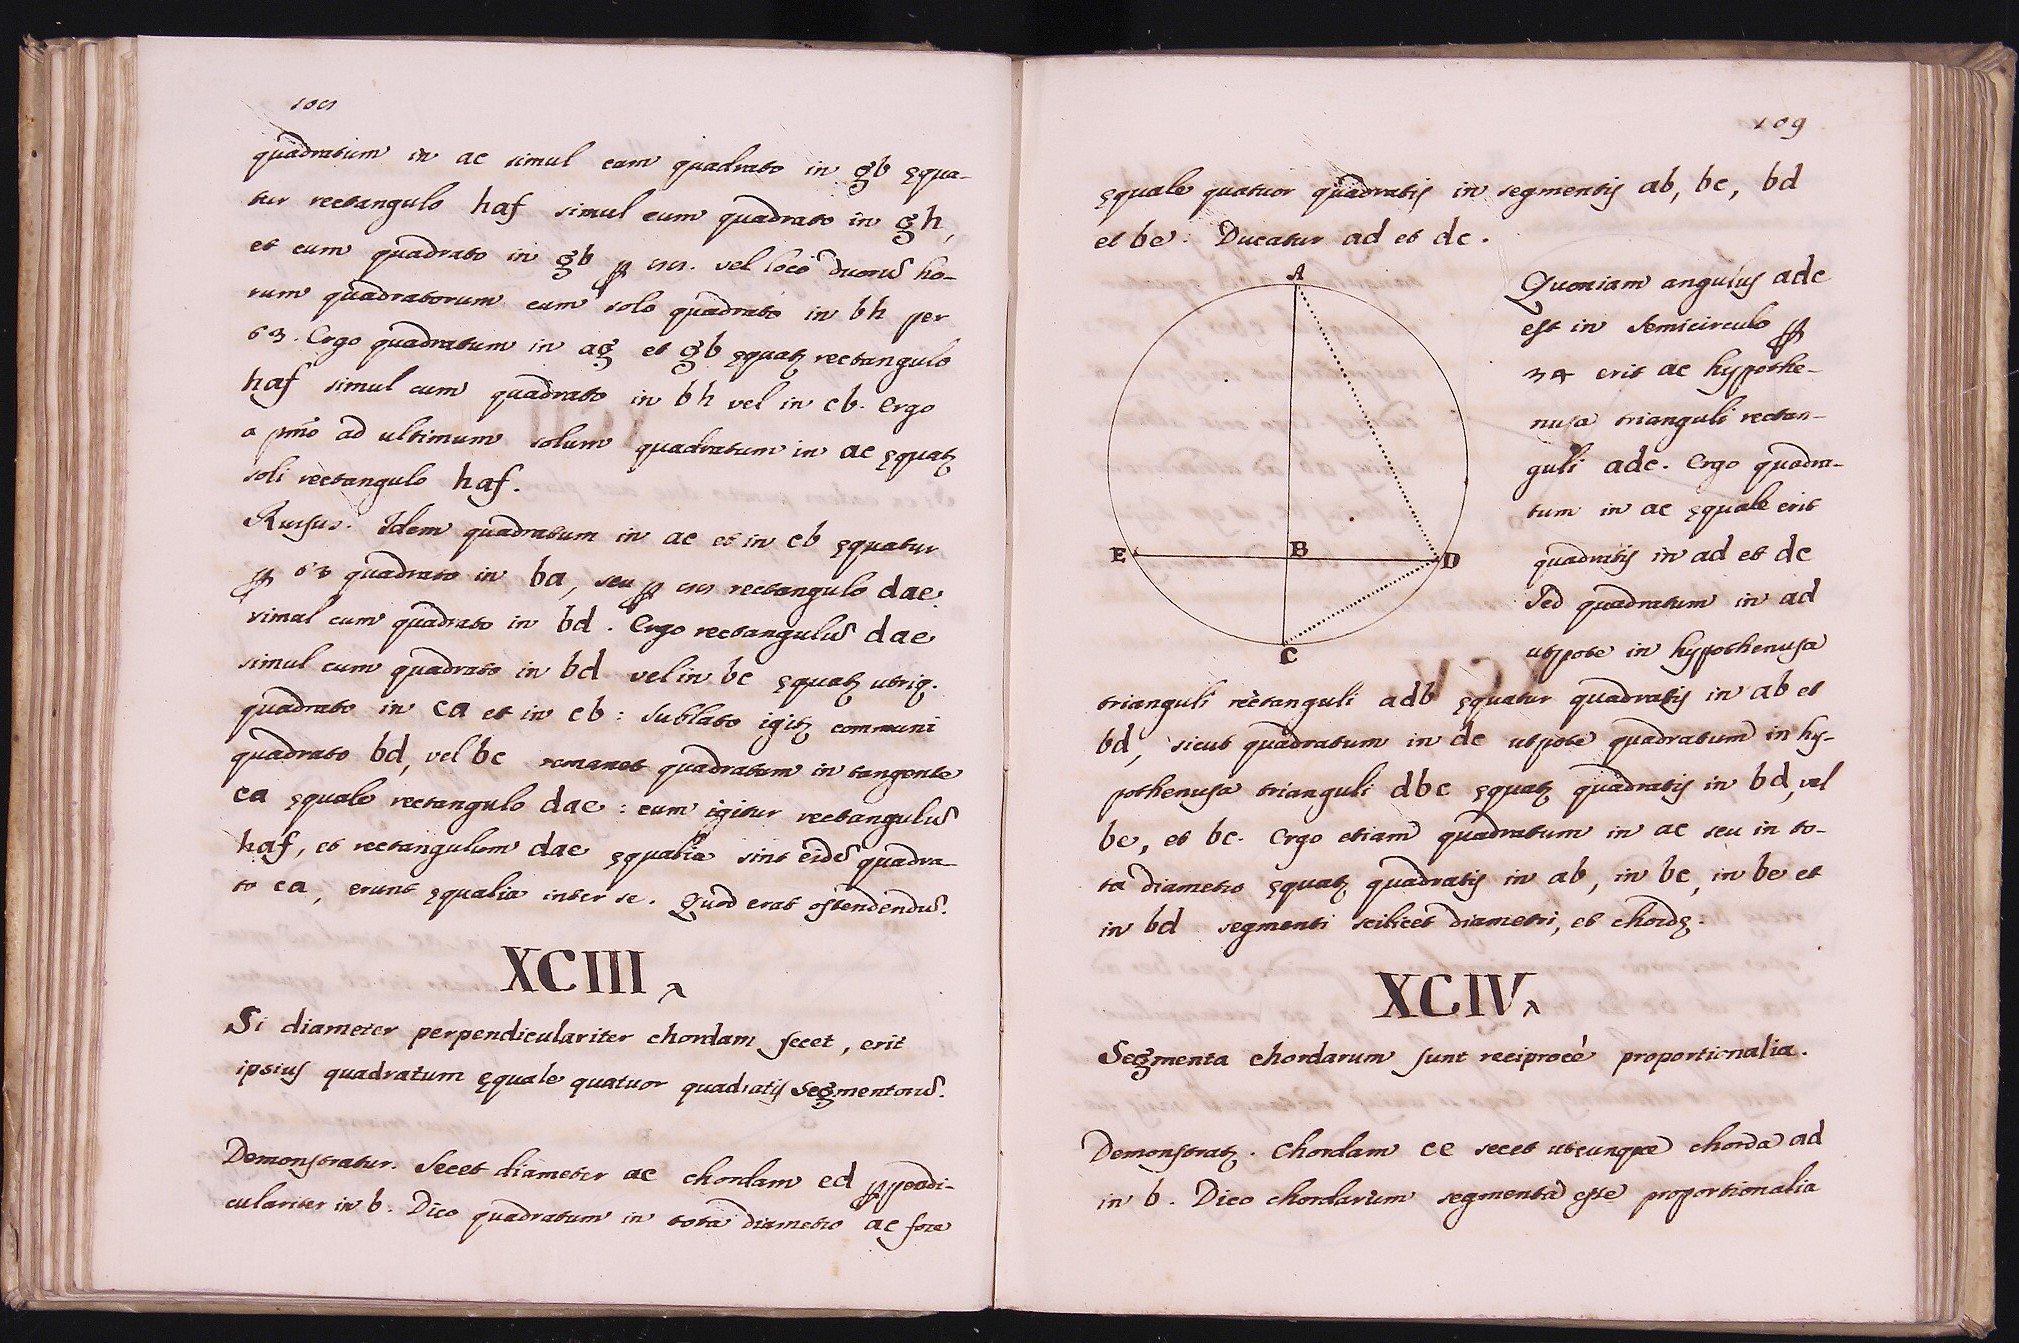 quadratum in ac simul cum quadrato in gb ęqua-
tur rectangulo haf simul cum quadrato in gh,
et cum quadrato in gb vel loco duorū ho-
rum quadratorum cum solo quadrato in bh per
63. Ergo quadratum in ag et gb ęquatȝ rectangulo
haf simul cum quadrato in bh vel in cb. Ergo
a pmō ad ultimum solum quadratum in ac ęquatȝ
soli rectangulo haf.
Rursus. Idem quadratum in ac et in cb ęquatur
ꝑ 63 quadrato in ba, seu ꝑ rectangulo dae
simul cum quadrato in bd. Ergo rectangulū dae
simul cum quadrato in bd vel in bc ęquatȝ utriq.
quadrato in ca et in cb: sublato igitȝ communi
quadrato bd, vel bc remanet quadratum in tangente
ca ęquale rectangulo dae: cum igitur rectangulū
haf, et rectangulum dae ęqualia sint eidē quadra-
to ca, erunt ęqualia inter se. Quod erat ostendendū.
XCIII
Si diameter perpendiculariter chordam secet, erit
ipsius quadratum ęquale quatuor quadratis segmentorū.
Demonstratur. Secet diameter ac chordam ed ꝑpendi-
culariter in b. Dico quadratum in tota diametro ac fore
109
ęquale quatuor quadratis in segmentis ab, bc, bd
et be. Ducatur ad et dc.
A
E
B
D
C
Quoniam angulus adc
est in semicirculo ꝑ
34 erit ac hypothe-
nusa trianguli rectan-
guli adc. Ergo quadra-
tum in ac ęquale erit
quadratis in ad et dc
Sed quadratum in ad
utpote in hypothenusa
trianguli rectanguli adb ęquatur quadratis in ab et
bd, sicut quadratum in dc utpote quadratum in hy-
pothenusa trianguli dbc ęquatȝ quadratis in bd, vel
be, et bc. Ergo etiam quadratum in ac seu in to-
ta diametro ęquatȝ quadratis in ab, in bc, in be et
in bd segmenti scilicet diametri, et chordę.
XCIV
Segmenta chordarum sunt reciprocè proportionalia.
Demonstratȝ. Chordam ce secet utcunque chorda ad
in b. Dico chordarum segmenta esse proportionalia